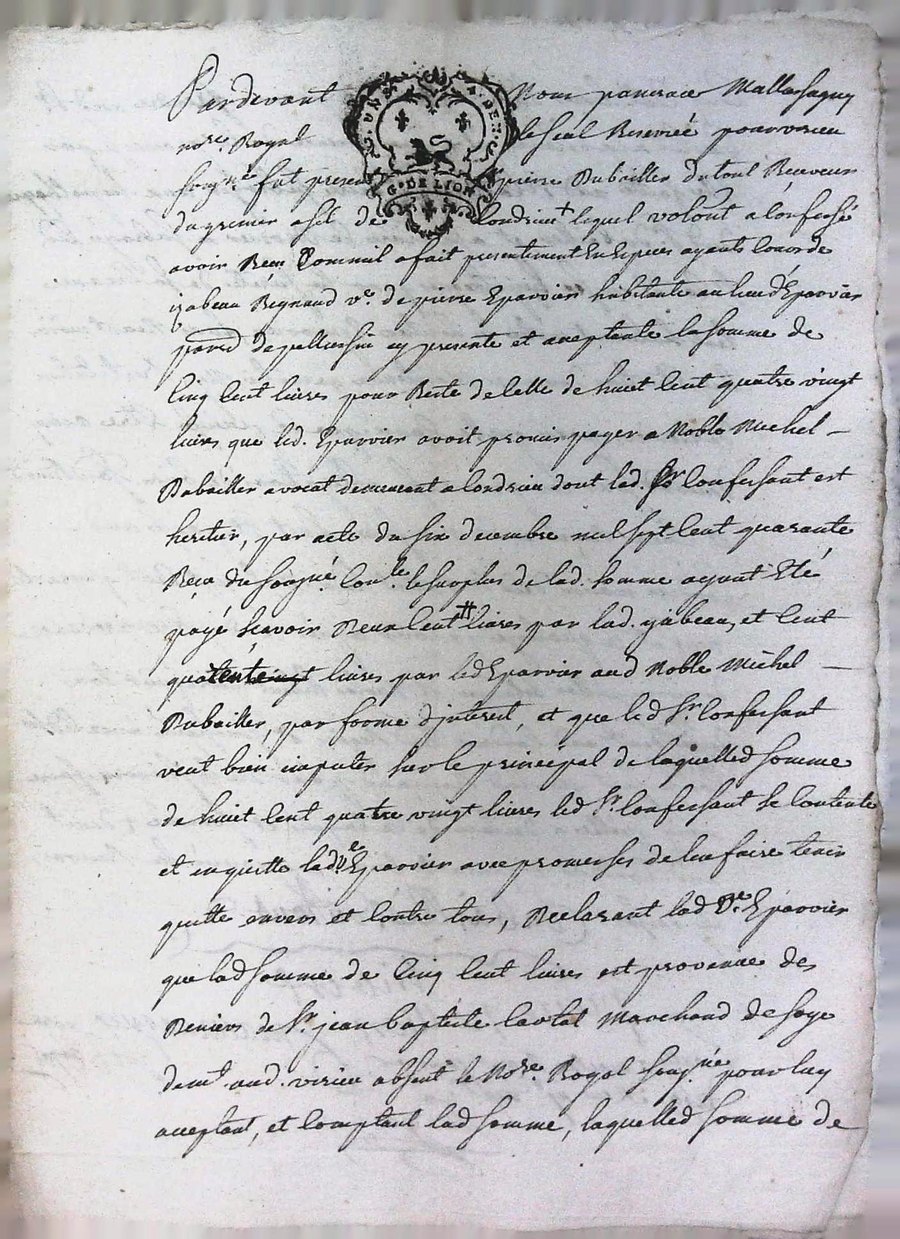 Pardevant Nous pancrace Mallassagny
nore. Royal le seul Reservée pour virieu
soug.né fut present pierre Dubailler du toul Receveur
G.D DE LION
du grenier a sel de Condrieu + lequel volont a Confessé
avoir Receu Comme il a fait presentement En Especes ayants Cours de
izabeau Regnaud ve. de pierre Eparvier habitante au lieu d'Eparvier
paroid. de pellussin cy presente et aceptante la somme de
Cinq Cent livres pour Reste de Celle de huict Cent quatre vingt
livres que led. Eparvier avoit promis payer a Noble Michel —
Dubailler avocat demeurant a Condrieu dont led. Sr. Confessant est
heritier, par acte du six decembre mil sept Cent quarante
Reçu du sougné. Con.lé le surplus de lad. somme ayant Eté
payé sçavoir Deux Cent tt livres par lad. yzabeau, et Cent
livres par led Eparvier aud Noble Michel —
Dubailler, par forme d'jnterest, et que led Sr. Confessant
veut bien imputer sur le principal de laquelled somme
de huict Cent quatre vingt livres led Sr. Confessant se Contente
et en quitte lad ve. Eparvier avec promesses de l'en faire tenir
quitte envers et Contre tous, Declarant lad Ve. Eparvier
que lad somme de Cinq Cent livres est provenue des
Deniers de Sr. jean baptiste Marchand de soye
demt. aud. virieu absent le Nore. Royal sougné pour luy
aceptant, et Comptant lad somme, laquelled somme de